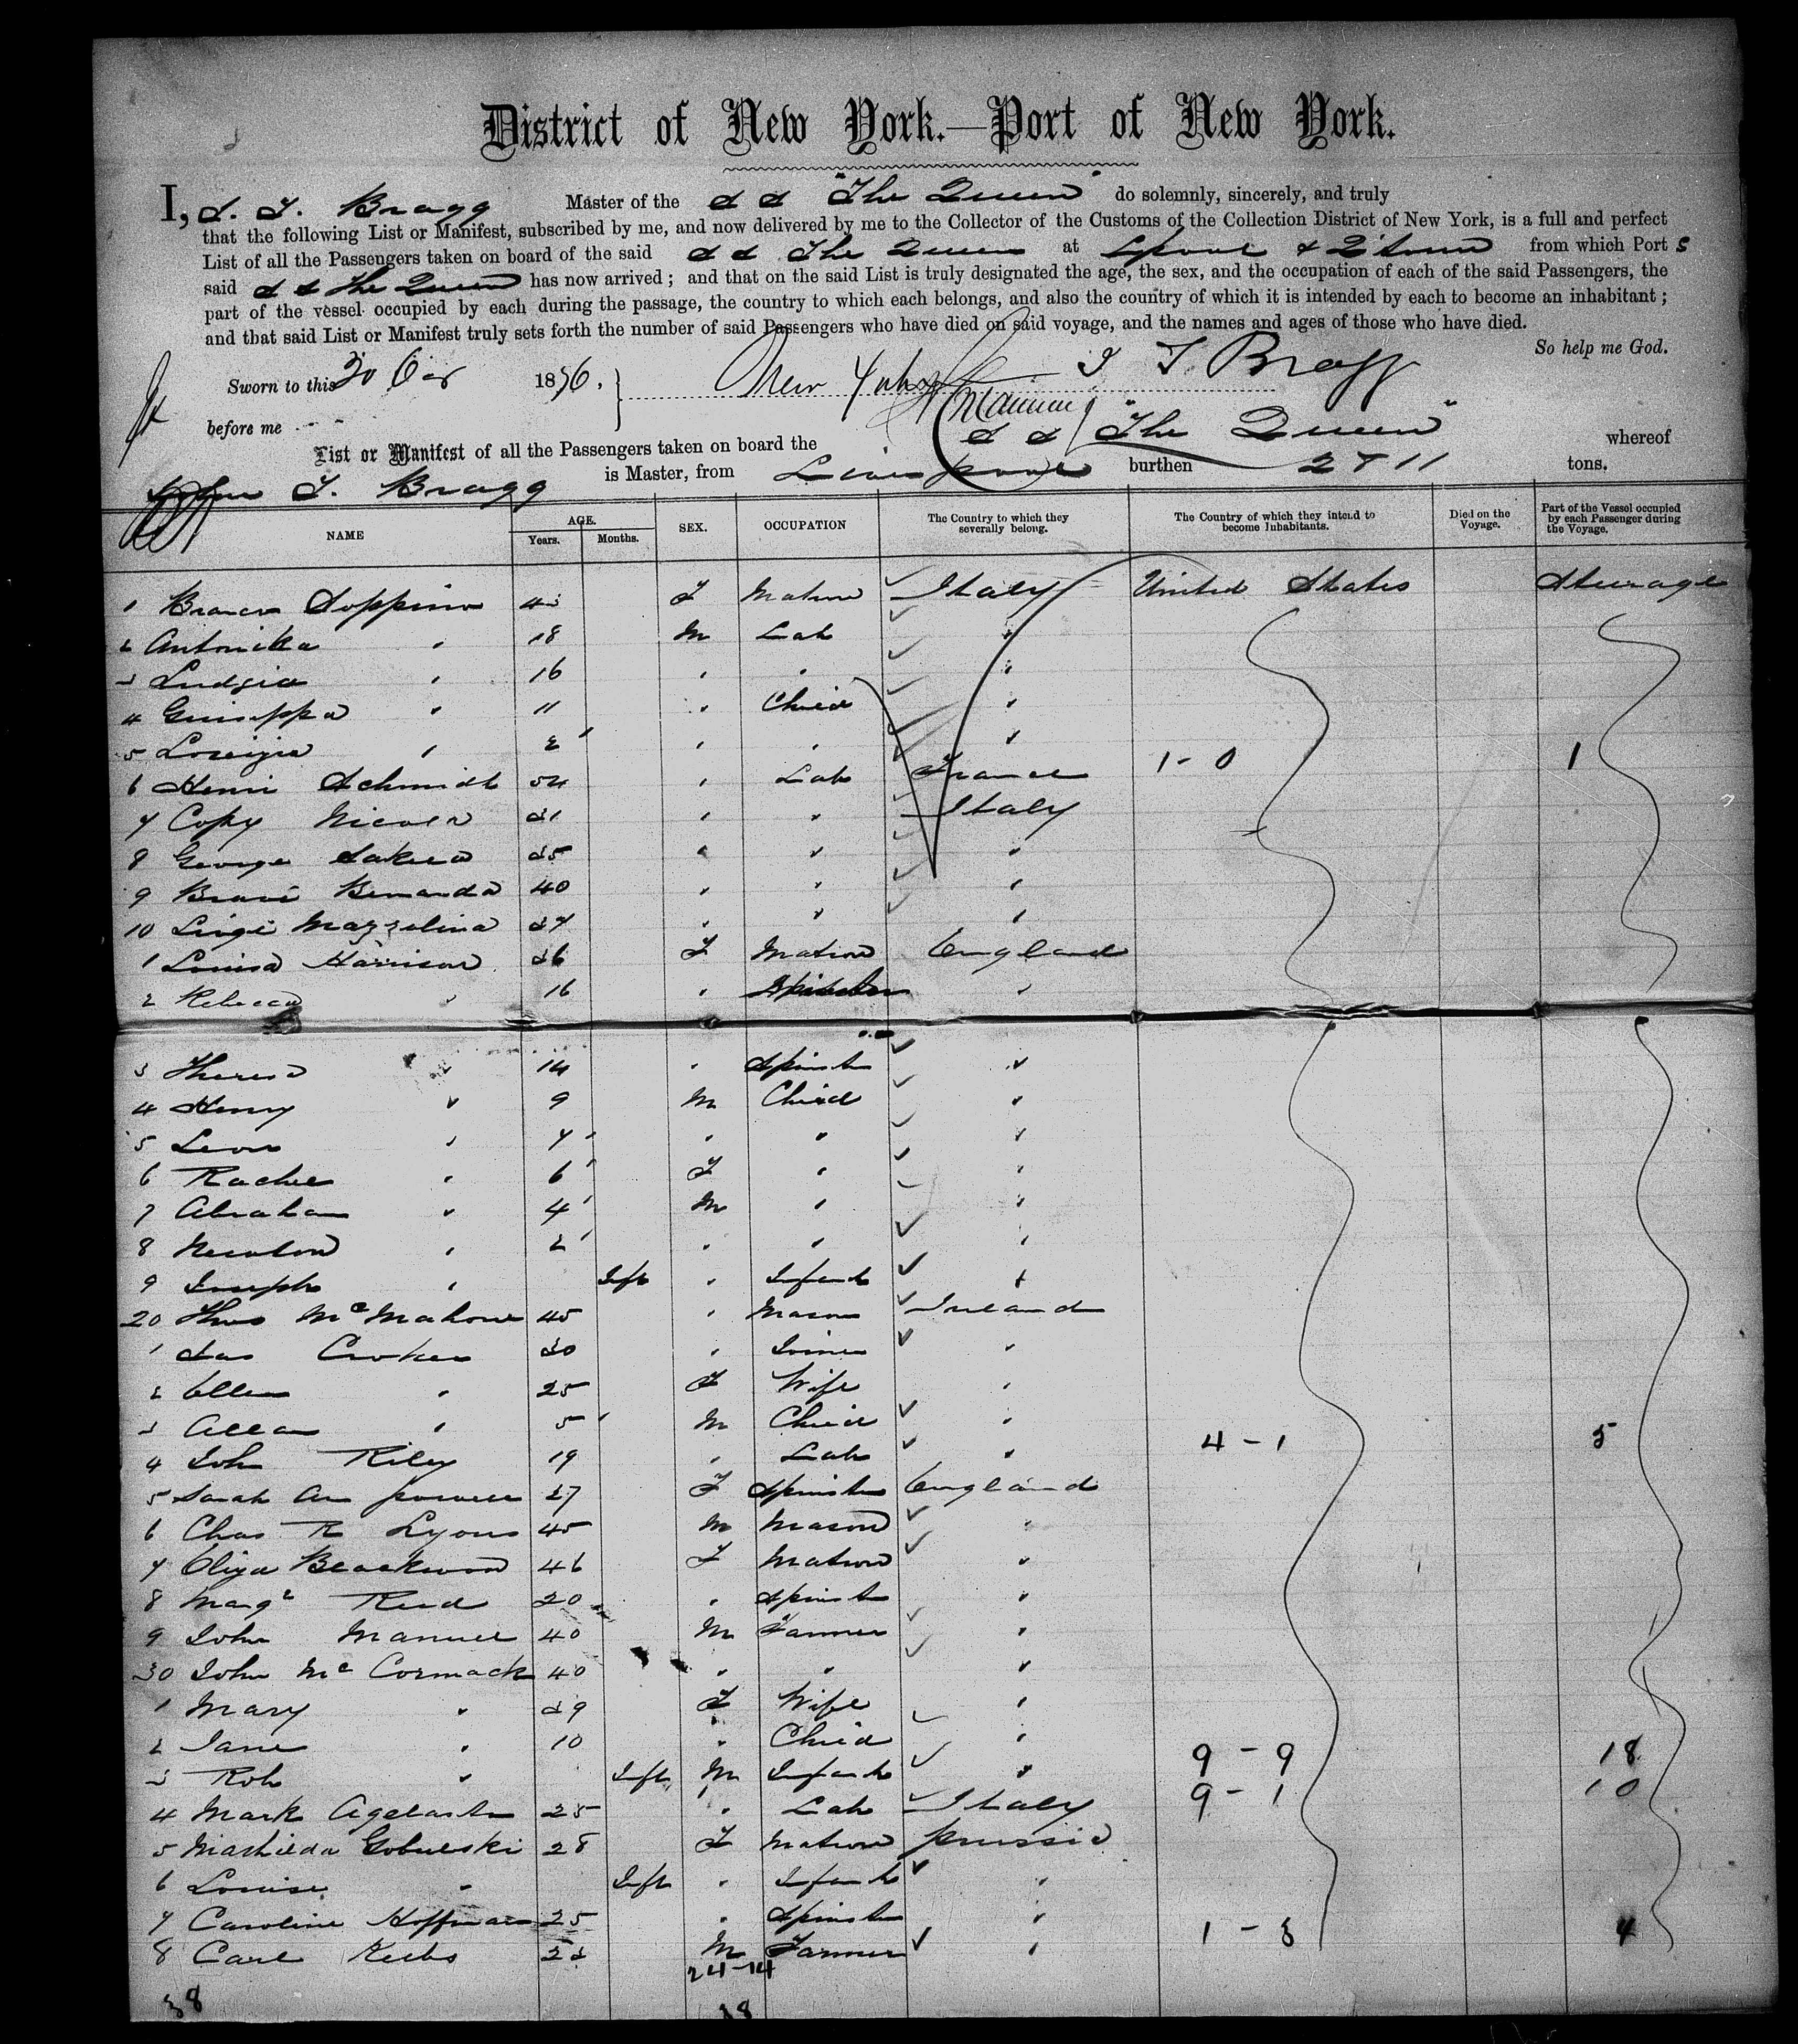 District of New York.—Port of New York.
I, S. T. Bragg Master of the S S "The Queen" do solemnly, sincerely, and truly
that the following List or Manifest, subscribed by me, and now delivered by me to the Collector of the Customs of the Collection District of New York, is a full and perfect
List of all the Passengers taken on board of the said S S The Queen at Lpool & Q'town from which Port s
said S S The Queen has now arrived; and that on the said List is truly designated the age, the sex, and the occupation of each of the said Passengers, the
part of the vessel occupied by each during the passage, the country to which each belongs, and also the country of which it is intended by each to become an inhabitant;
and that said List or Manifest truly sets forth the number of said Passengers who have died on said voyage, and the names and ages of those who have died.
So help me God.
Sworn to this 30 1876. New York T. Bragg
before me Manning
List or Manifest of all the Passengers taken on board the S S "The Queen" whereof
T. Bragg is Master, from Liverpool burthen tons.
NAME AGE. Years. Months. SEX. OCCUPATION The Country to which they severally belong. The Country of which they intend to become Inhabitants. Died on the Voyage. Part of the Vessel occupied by each Passenger during the Voyage.
1 Soppino F Matron Italy United States Steerage
2 Antonika " 18 M Lab "
3 Ludgia " 16 " " "
4 Guiseppa " 11 " Child "
5 " 2 " " "
6 Henri Schmidt 54 " Lab France 1-0 1
7 Copy Nicola 31 " " Italy
8 George 35 " " "
9 40 " " "
10 Luigi Mazzelina 37 " " "
1 Louisa Harrison 36 F Matron England
2 Rebecca " 16 " Spinster "
3 Theresa " 14 " Spinstr "
4 Henry " 9 M Child "
5 Leon " 7 " " "
6 Rachel " 6 F " "
7 Abraham " 4 M " "
8 Newton " 2 " " "
9 Joseph " Inft " Infant "
20 Thos McMahon 45 " Mason Ireland
1 Jas Croker 30 " Joiner "
2 Ellen " 25 F Wife "
3 Allan " 5 M Child "
4 John Riley 19 " Lab " 4-1 5
5 Sarah An Powell 27 F Spinstr England
6 Chas R Lyons 45 M Mason "
7 Eliza Blackwood 46 F Matron "
8 Margt Reid 20 " Spinstr "
9 John Manuel 40 M Farmer "
30 John Mc Cormack 40 " " "
1 Mary " 39 F Wife "
2 Jane " 10 " Child "
3 Rob " Inft M Infant " 9-9 18
4 Mark Agelasto 25 " Lab Italy 9-1 10
5 Mathilda Gobulski 28 F Matron Prussia
6 Louise " Inft " Infant "
7 Caroline Hoffman 25 " Spinstr "
8 Carl Krebs 23 M Farmer " 1-3 4
24-14
38 38